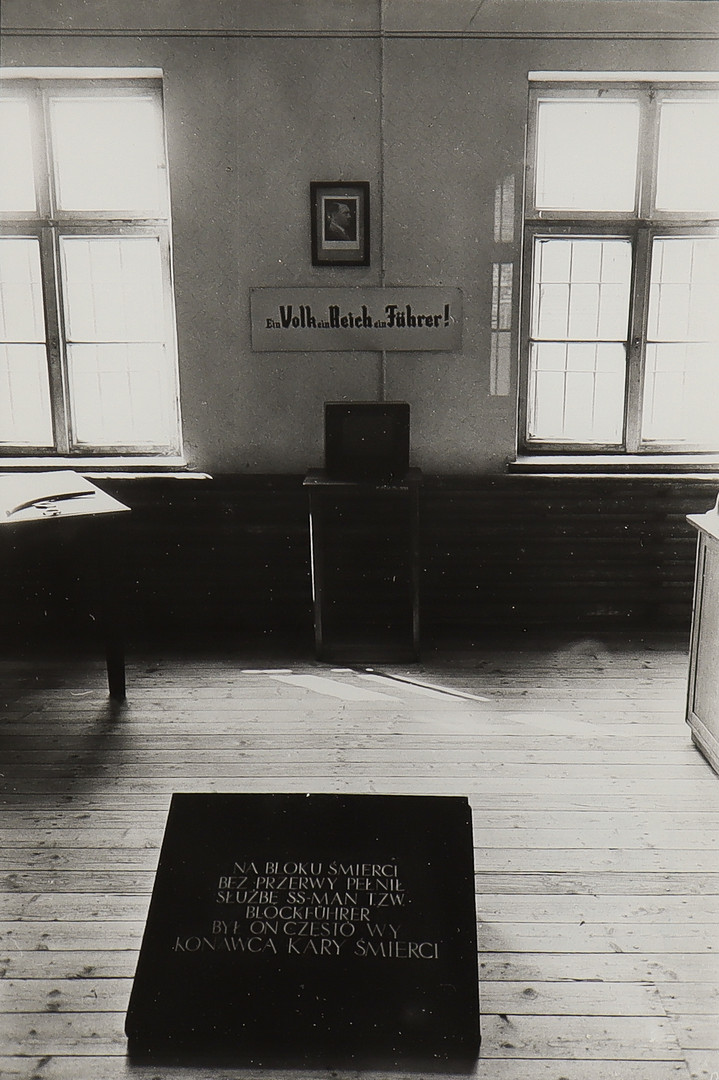 Ein Volk ein Reich ein Führer!
NA BLOKU ŚMIERCI
BEZ PRZERWY PEŁNIŁ
SŁUŻBĘ SS-MAN TZW.
BLOCKFÜHRER
BYŁ ON CZĘSTO WY
KONAWCĄ KARY ŚMIERCI